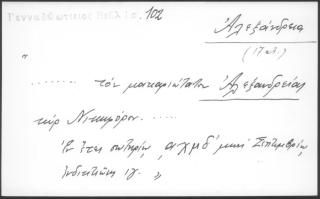 Γενναδιωτικος Βιβλ. 102
Ἀλεξάνδρεια
(17 αἰ.)
"
......... τὸν μακαριώτατον Ἀλεξανδρείας
κὺρ Νικηφόρον.....
Ἐν ἔτει σωτηρίῳ αχμδ' μηνὶ Σεπτεμβρίῳ,
Ἰνδικτιῶνι ιγ. "